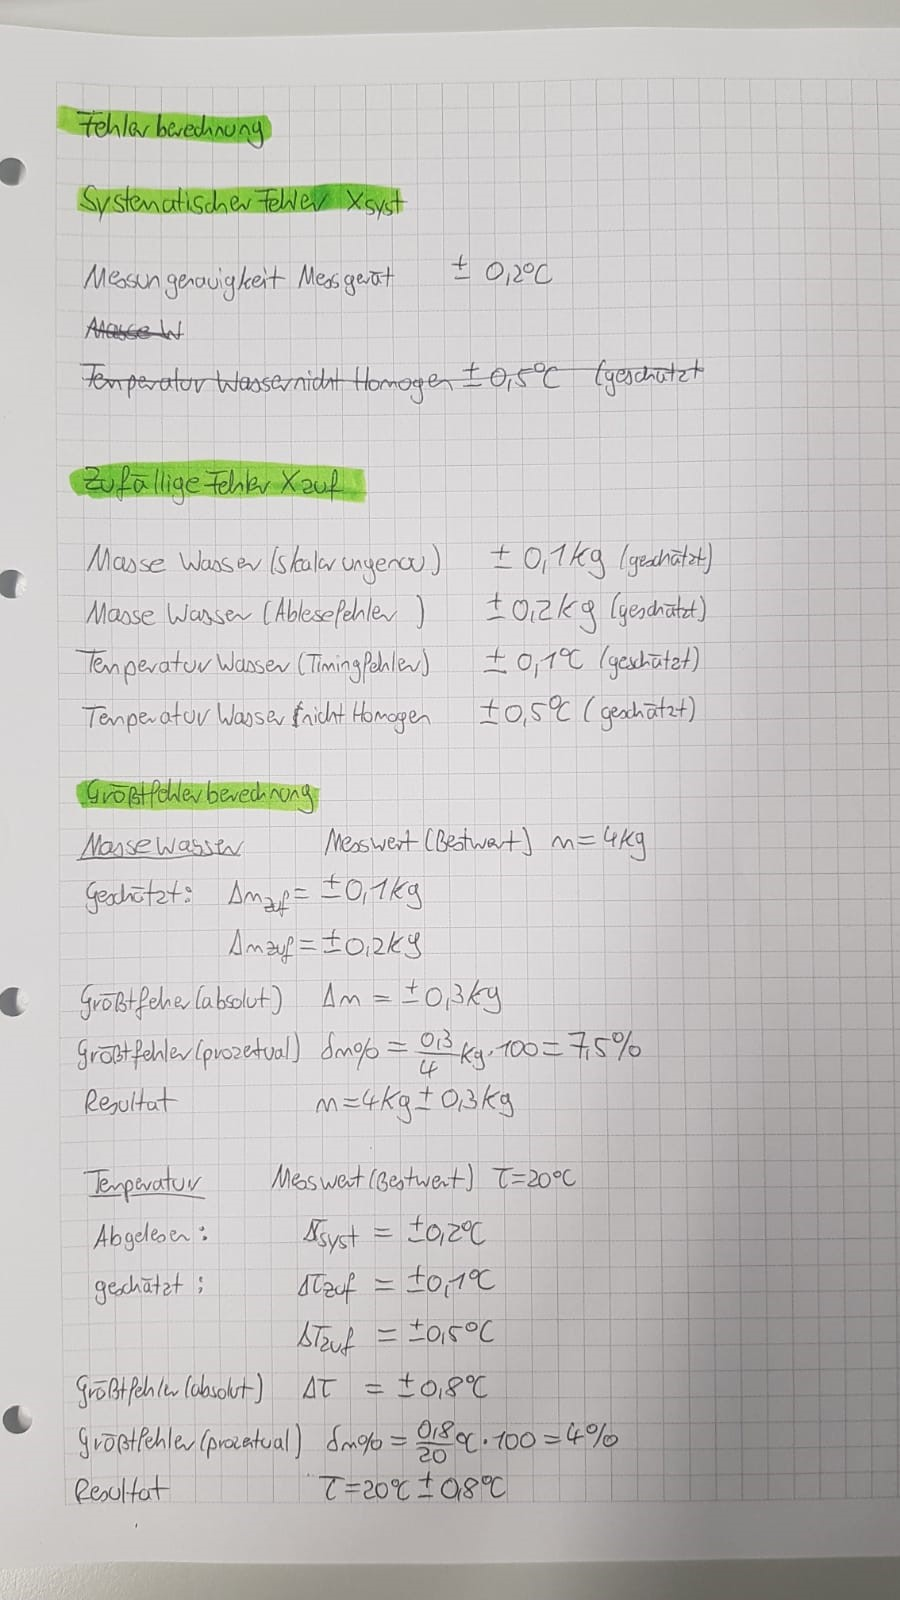 Fehlerberechnung
Systematischer Fehler Xsyst
Messungenauigkeit Messgerät ± 0,2°C
Masse W
Temperatur Wasser nicht Homogen ± 0,5°C (geschätzt
Zufällige Fehler Xzuf
Masse Wasser (Skalar ungenau) ± 0,1kg (geschätzt)
Masse Wasser (Ablesefehler) ± 0,2kg (geschätzt)
Temperatur Wasser (Timingfehler) ± 0,1°C (geschätzt)
Temperatur Wasser nicht Homogen ± 0,5°C (geschätzt)
Größtfehlerberechnung
Masse Wasser Messwert (Bestwert) m = 4kg
Geschätzt: Δmzuf = ± 0,1kg
Δmzuf = ± 0,2kg
Größtfeher (absolut) Δm = ± 0,3kg
Größtfehler (prozetual) δm% = 0,3/4 kg · 100 = 7,5%
Resultat m = 4kg ± 0,3kg
Temperatur Messwert (Bestwert) T = 20°C
Abgelesen: ΔTsyst = ± 0,2°C
geschätzt: ΔTzuf = ± 0,1°C
ΔTzuf = ± 0,5°C
Größtfehler (absolut) ΔT = ± 0,8°C
Größtfehler (prozetual) δm% = 0,8/20 °C · 100 = 4%
Resultat T = 20°C ± 0,8°C